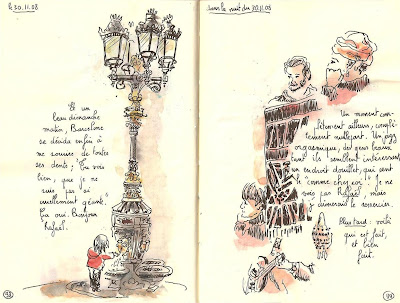 le 30.11.08
Et un
beau dimanche
matin, Barcelone
se décida enfin à
me sourire de toutes
ses dents; "Tu vois
bien, que je ne
suis pas si
cruellement géante".
Ça oui. Bonjour
Rafaël.
98
dans la nuit du 30.11.08
Un moment com-
plètement ailleurs, complè-
tement nulle part. Un jazz
orgasmique, des gens beaux
tant ils semblent intéressants,
un endroit douillet, qui sent
le "comme chez soi". Je ne
vois pas Rafaël mais
j'aimerais le remercier.
Plus tard: voilà
qui est fait,
et bien
fait.